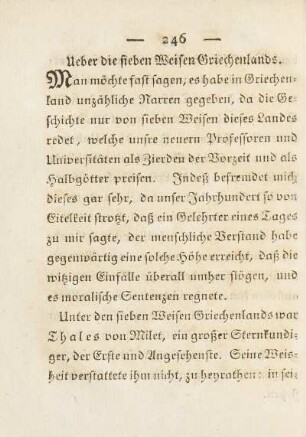 — 246 —
Ueber die sieben Weisen Griechenlands.
Man möchte fast sagen, es habe in Griechen-
land unzähliche Narren gegeben, da die Ge-
schichte nur von sieben Weisen dieses Landes
redet, welche unsre neuern Professoren und
Universitäten als Zierden der Vorzeit und als
Halbgötter preisen. Indeß befremdet mich
dieses gar sehr, da unser Jahrhundert so von
Eitelkeit strotzt, daß ein Gelehrter eines Tages
zu mir sagte, der menschliche Verstand habe
gegenwärtig eine solche Höhe erreicht, daß die
witzigen Einfälle überall umher flögen, und
es moralische Sentenzen regnete.
Unter den sieben Weisen Griechenlands war
Thales von Milet, ein großer Sternkundi-
ger, der Erste und Angesehenste. Seine Weis-
heit verstattete ihm nicht, zu heyrathen: in sei-